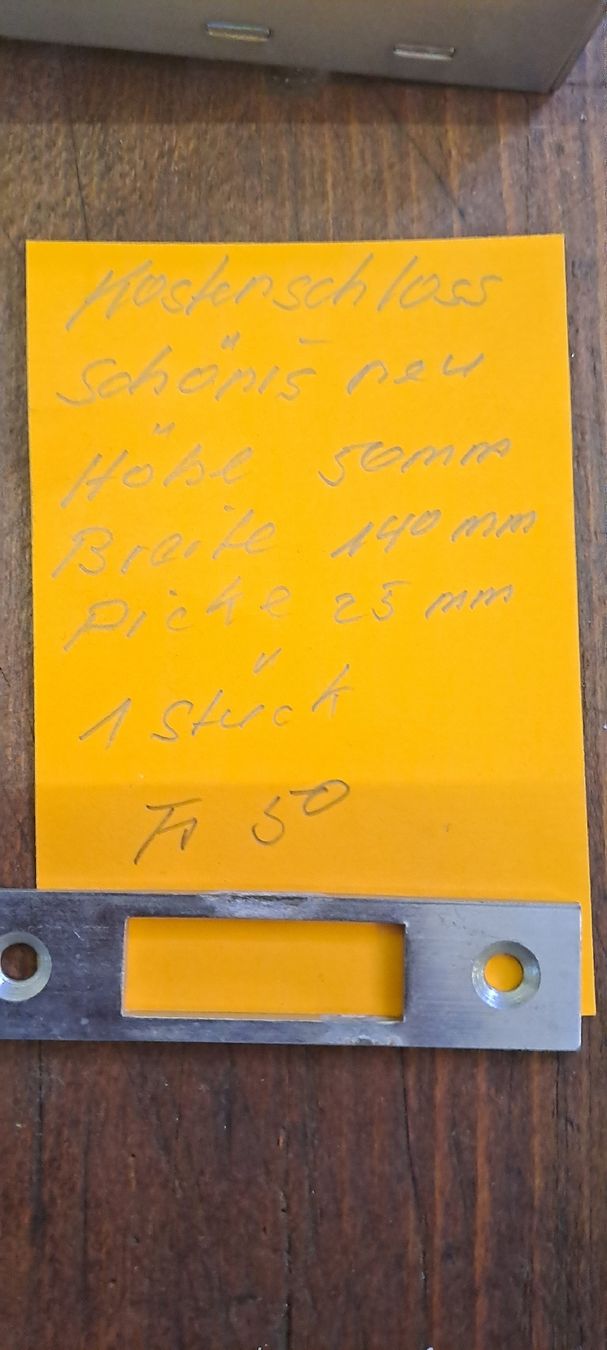 Kastenschloss
Schänis neu
Höhe 50 mm
Breite 140 mm
Dicke 25 mm
1 Stück
Fr 50